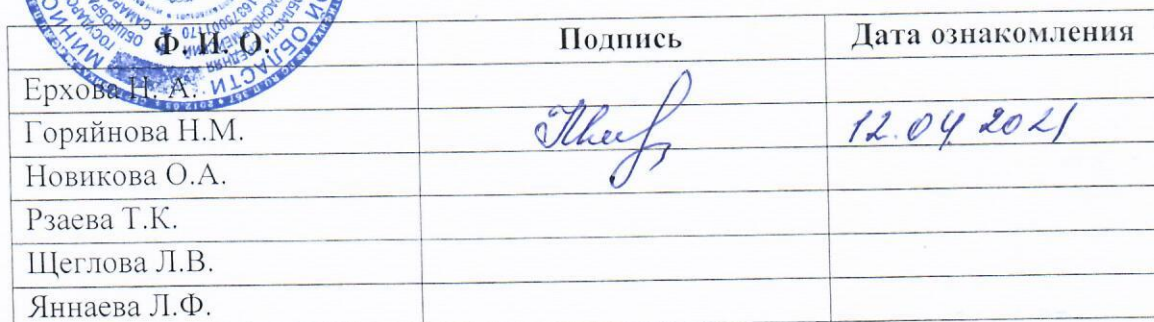 Ф. И. О. Подпись Дата ознакомления
Ерхова Н. А.
Горяйнова Н.М. 12.04 2021
Новикова О.А.
Рзаева Т.К.
Щеглова Л.В.
Яннаева Л.Ф.
ОБЛАСТИ